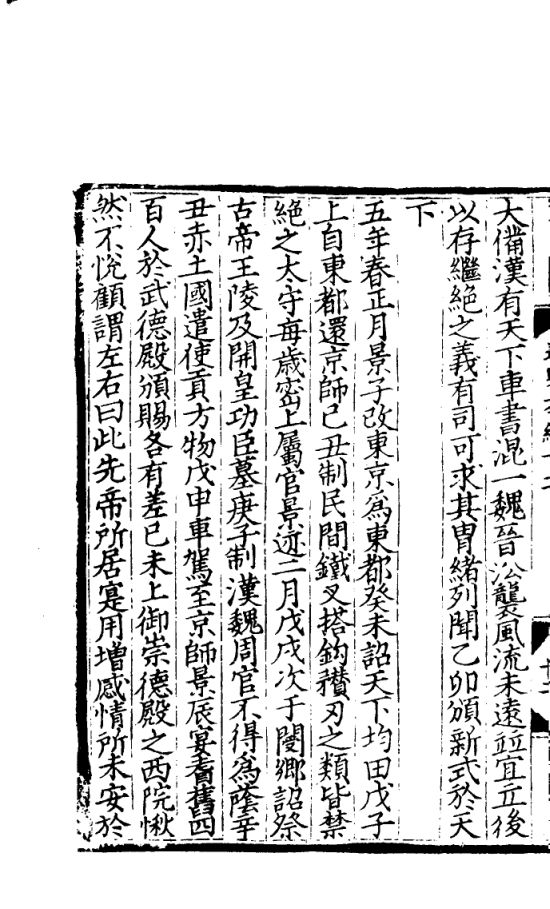 大備漢有天下車書混一魏晉沿襲風流未遠竝宜立後
以存繼絶之義有司可求其胄緒列聞乙卯頒新式於天
下
五年春正月景子改東京爲東都癸未詔天下均田戊子
上自東都還京師己丑制民間鐵叉搭鈎䂎刃之類皆禁
絶之太守每歲密上屬官景迹二月戊戌次于閿鄉詔祭
古帝王陵及開皇功臣墓庚子制漢魏周官不得爲蔭辛
丑赤土國遣使貢方物戊申車駕至京師景辰宴耆舊四
百人於武德殿頒賜各有差己未上御崇德殿之西院愀
然不恱顧謂左右曰此先帝所居寔用增感情所未安於